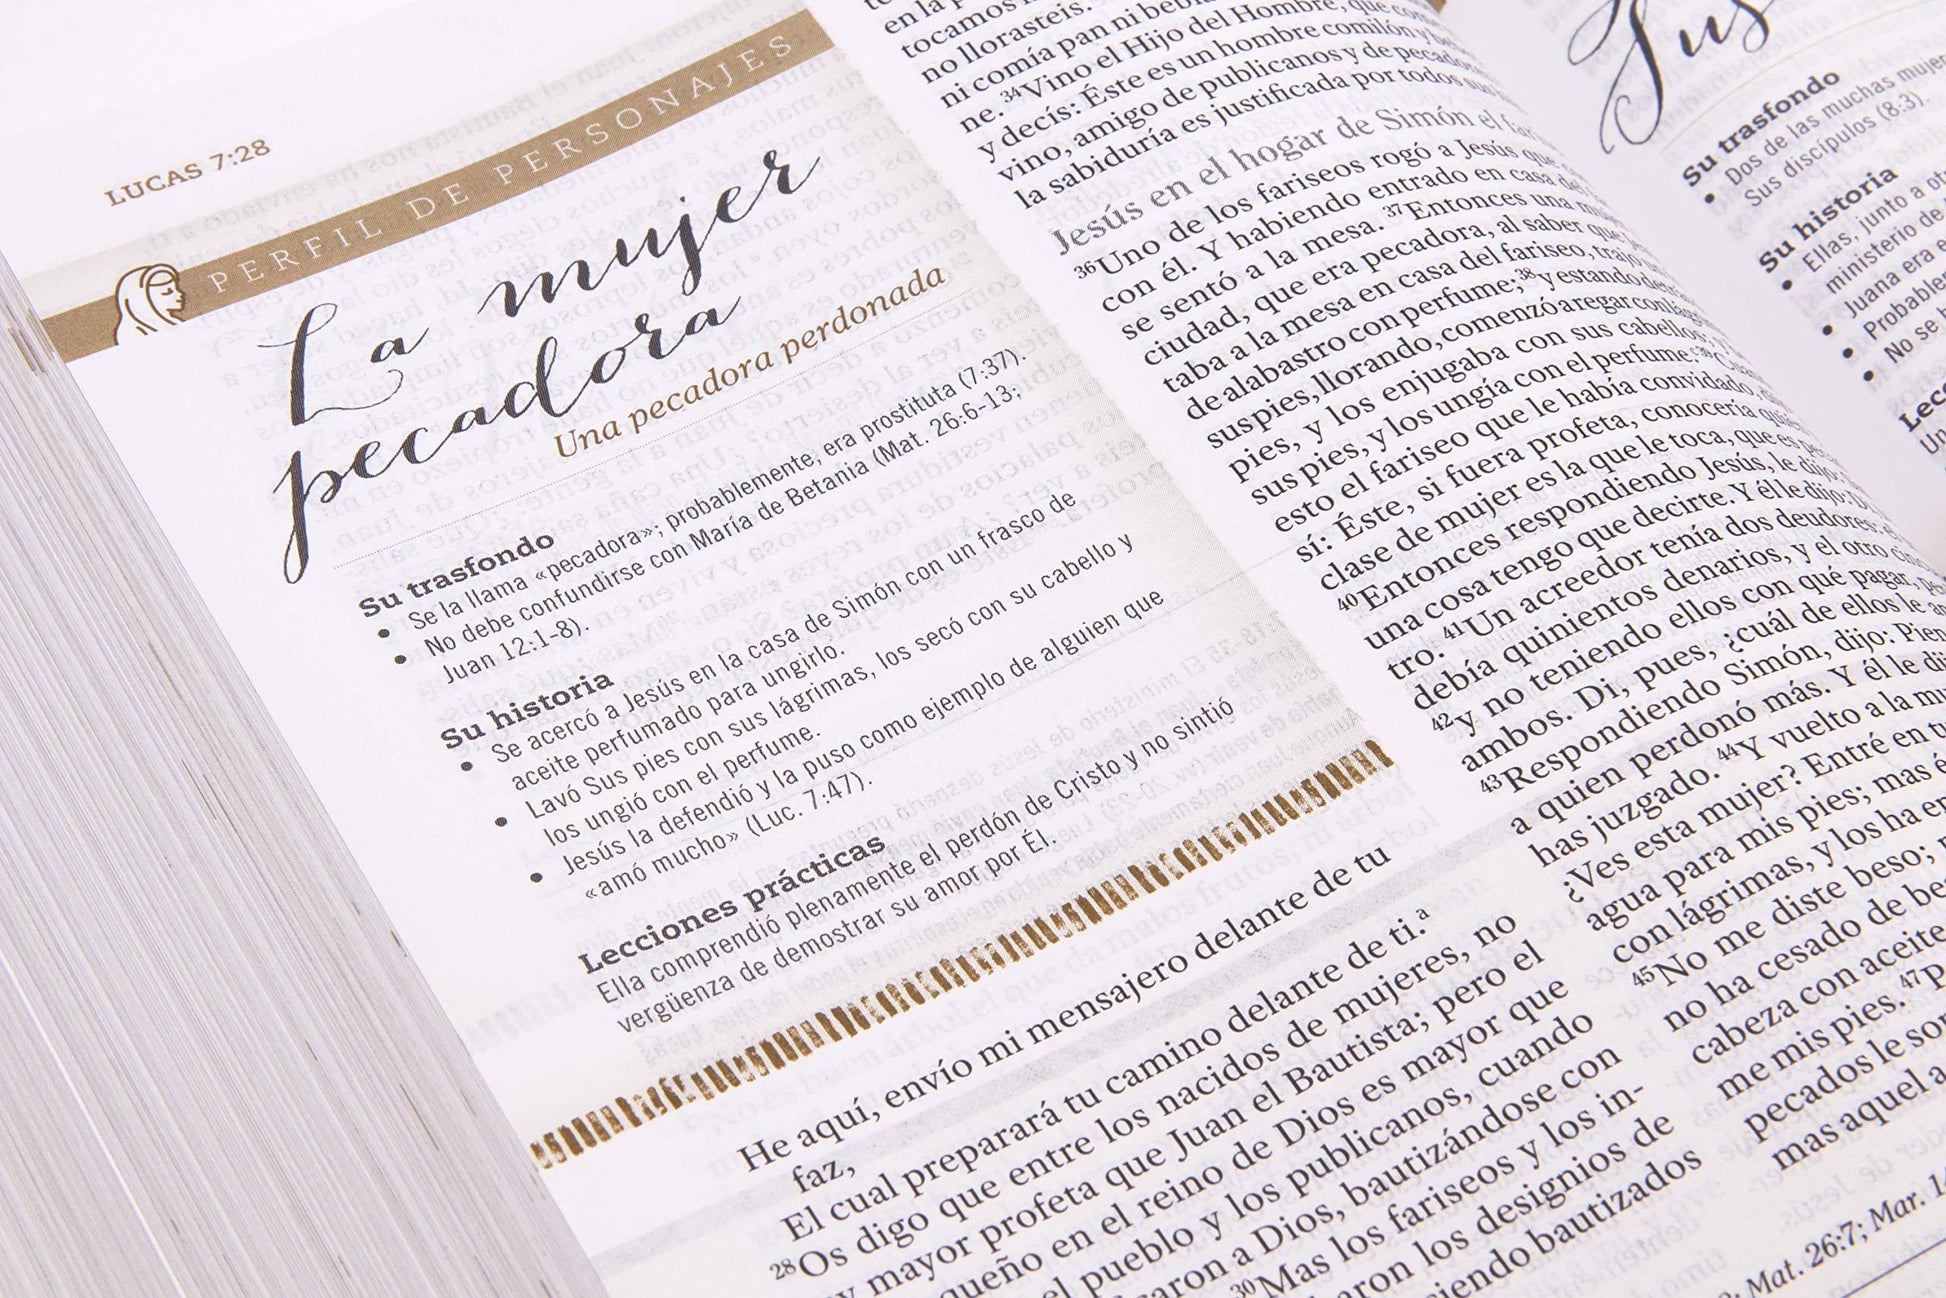 LUCAS 7:28
PERFIL DE PERSONAJES
La mujer
pecadora
Una pecadora perdonada
Su trasfondo
• Se la llama «pecadora»; probablemente, era prostituta (7:37).
• No debe confundirse con María de Betania (Mat. 26:6-13;
Juan 12:1-8).
Su historia
• Se acercó a Jesús en la casa de Simón con un frasco de
aceite perfumado para ungirlo.
• Lavó Sus pies con sus lágrimas, los secó con su cabello y
los ungió con el perfume.
• Jesús la defendió y la puso como ejemplo de alguien que
«amó mucho» (Luc. 7:47).
Lecciones prácticas
Ella comprendió plenamente el perdón de Cristo y no sintió
vergüenza de demostrar su amor por Él.
He aquí, envío mi mensajero delante de tu
faz,
El cual preparará tu camino delante de ti.ª
28Os digo que entre los nacidos de mujeres, no
mayor profeta que Juan el Bautista; pero el
en el reino de Dios es mayor que
el pueblo y los publicanos, cuando
a Dios, bautizándose con
30Mas los fariseos y los in-
los designios de
bautizados
en la
tocamos
no llorasteis.
ni comía pan ni
ne. 34Vino el Hijo del Hombre, que
y decís: Éste es un hombre comilón y
vino, amigo de publicanos y de
la sabiduría es justificada por todos
Jesús en el hogar de Simón el
36Uno de los fariseos rogó a Jesús que
con él. Y habiendo entrado en casa del
se sentó a la mesa. 37Entonces una
ciudad, que era pecadora, al saber que
taba a la mesa en casa del fariseo, trajo
de alabastro con perfume; 38y estando
sus pies, llorando, comenzó a regar con
pies, y los enjugaba con sus cabellos;
sus pies, y los ungía con el perfume. 39
esto el fariseo que le había convidado,
sí: Éste, si fuera profeta, conocería
clase de mujer es la que le toca, que es
40Entonces respondiendo Jesús, le dijo:
una cosa tengo que decirte. Y él le dijo:
tro. 41Un acreedor tenía dos deudores: el
debía quinientos denarios, y el otro
42y no teniendo ellos con qué pagar,
ambos. Di, pues, ¿cuál de ellos le
43Respondiendo Simón, dijo:
a quien perdonó más. Y él le
has juzgado. 44Y vuelto a la
¿Ves esta mujer? Entré en
agua para mis pies; mas
con lágrimas, y los ha
45No me diste beso;
no ha cesado de
cabeza con aceite
me mis pies. 47
pecados le
mas aquel a
Mat. 26:7; Mar.
Su trasfondo
• Dos de las muchas
Sus discípulos (8:3).
Su historia
• Ellas, junto a
ministerio de
• Juana era
•
• No se